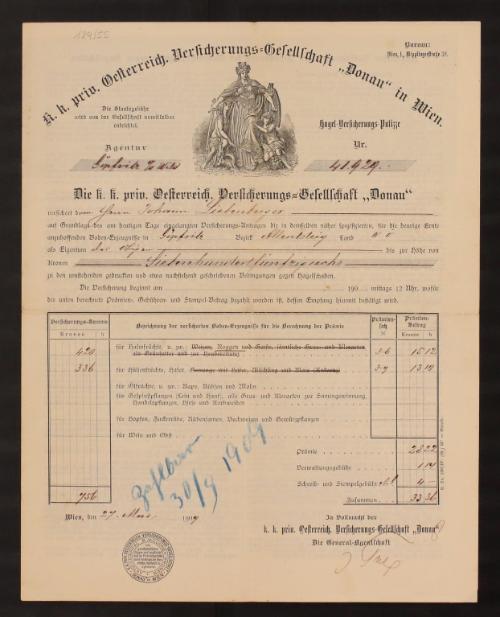 184/55
Bureau:
Wien, I., Wipplingerstraße 36.
K. k. priv. Oesterreich. Versicherungs-Gesellschaft „Donau“ in Wien.
Die Staatsgebühr
wird von der Gesellschaft unmittelbar
entrichtet.
Hagel-Versicherungs-Polizze
Agentur
Nr.
Göpfritz
41.929.
Die k. k. priv. Oesterreich. Versicherungs-Gesellschaft „Donau“
versichert dem Herrn Johann
auf Grundlage des am heutigen Tage eingelangten Versicherungs-Antrages die in demselben näher spezifizierten, für die heurige Ernte
anzuhoffenden Boden-Erzeugnisse in Göpfritz Bezirk Allentsteig Land N Ö
als Eigentum des Obigen bis zur Höhe von
Kronen Siebenhundertfünfzigsechs
zu den umstehenden gedruckten und etwa nachfolgenden geschriebenen Bedingungen gegen Hagelschaden.
Die Versicherung beginnt am 190 mittags 12 Uhr, wofür die
unten berechnete Prämien-, Gebühren- und Stempel-Betrag bezahlt worden ist, dessen Empfang hiermit bestätigt wird.
Versicherungs-Summe
Bezeichnung der versicherten Boden-Erzeugnisse für die Berechnung der Prämie
Prämien-Satz
Prämien-Betrag
Kronen h
%
Kronen h
420 für Halmfrüchte, u. zw.: Weizen, Roggen und Gerste, 3·6 15 12
336 für Hülsenfrüchte, Hafer, 3·9 13 10
für Ölfrüchte, u. zw.: Raps, Rübsen und Mohn
für Gespinstpflanzen (Lein und Hanf), alle Gras- und Kleearten zur Samengewinnung,
Handelspflanzen, Hirse und Buchweizen
für Hopfen, Zuckerrübe, Rübensamen, Buchweizen und Gemüsepflanzen
für Wein und Obst
Prämie 28 22
Verwaltungsgebühr 1 14
Schreib- und Stempelgebühr 4 —
756 Zusammen 33 36
Zahlbar
30/9 1909
Wien, den 27. Mai 1909
In Vollmacht der
k. k. priv. Oesterreich. Versicherungs-Gesellschaft „Donau“
Die General-Agentschaft